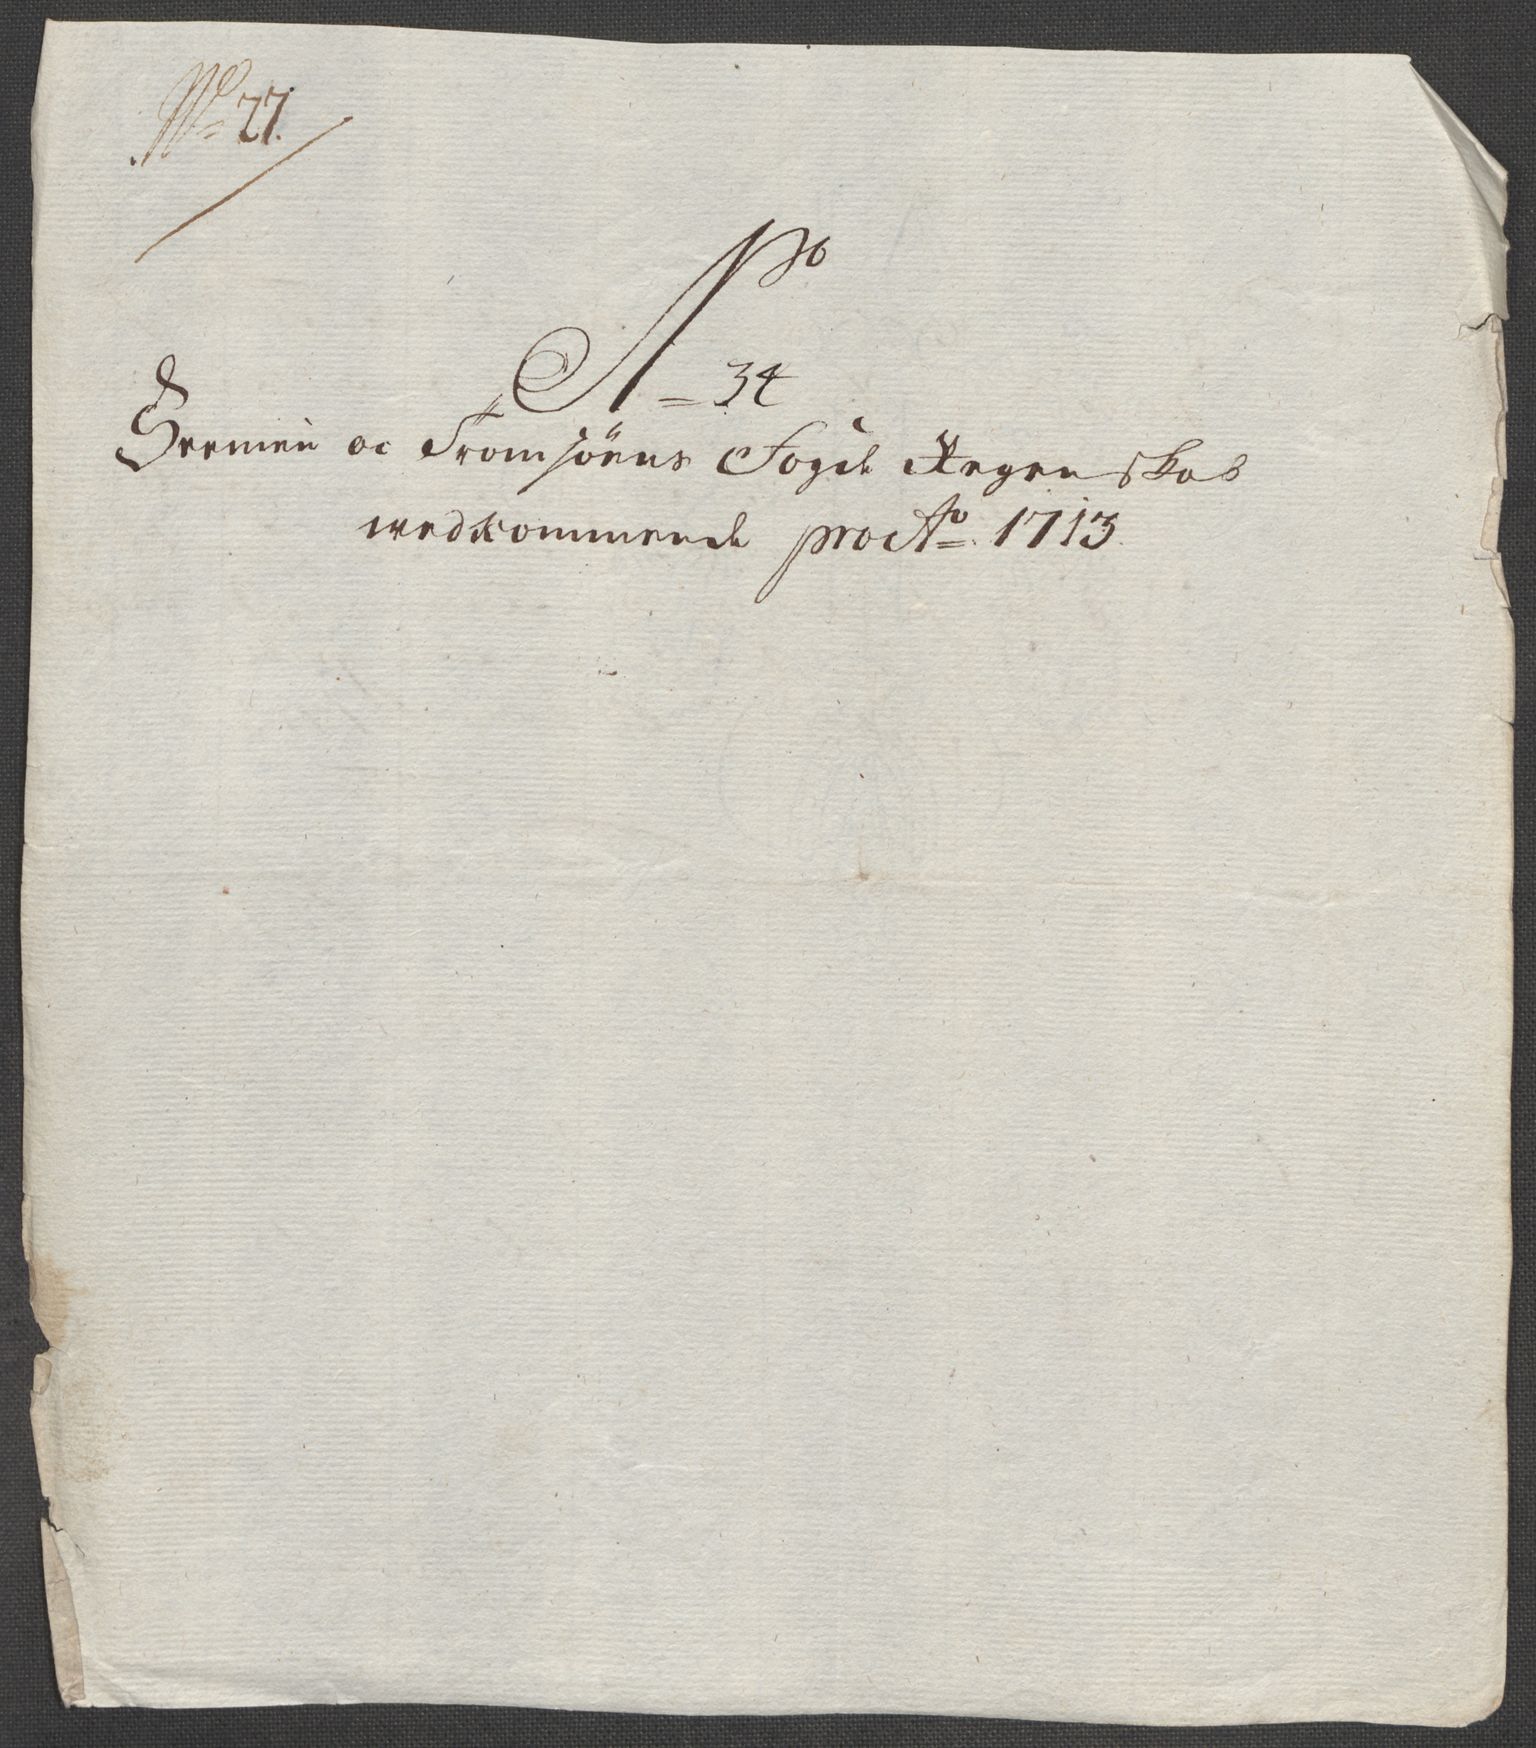 No 27.
No 34
Sennien oc Tromsöens Fogde Regenskab
wedkommende pro Ao 1713.